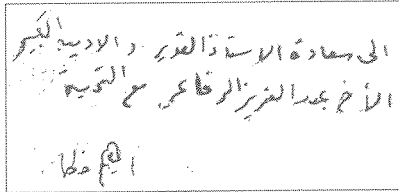 الى سعادة الاستاذ القدير والاديب الكبير
الأخ عبد العزيز الرفاعي مع التحية